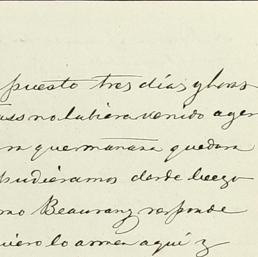 puesto tres dias y horas
no lubiera venido ayer
ra que manana quedara
pudiéramos desde luego
mo Beauranz responde
uiero lo armen aqui y